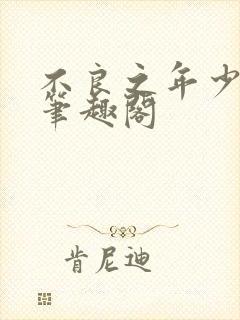 不良之年少
筆趣閣
肯尼迪